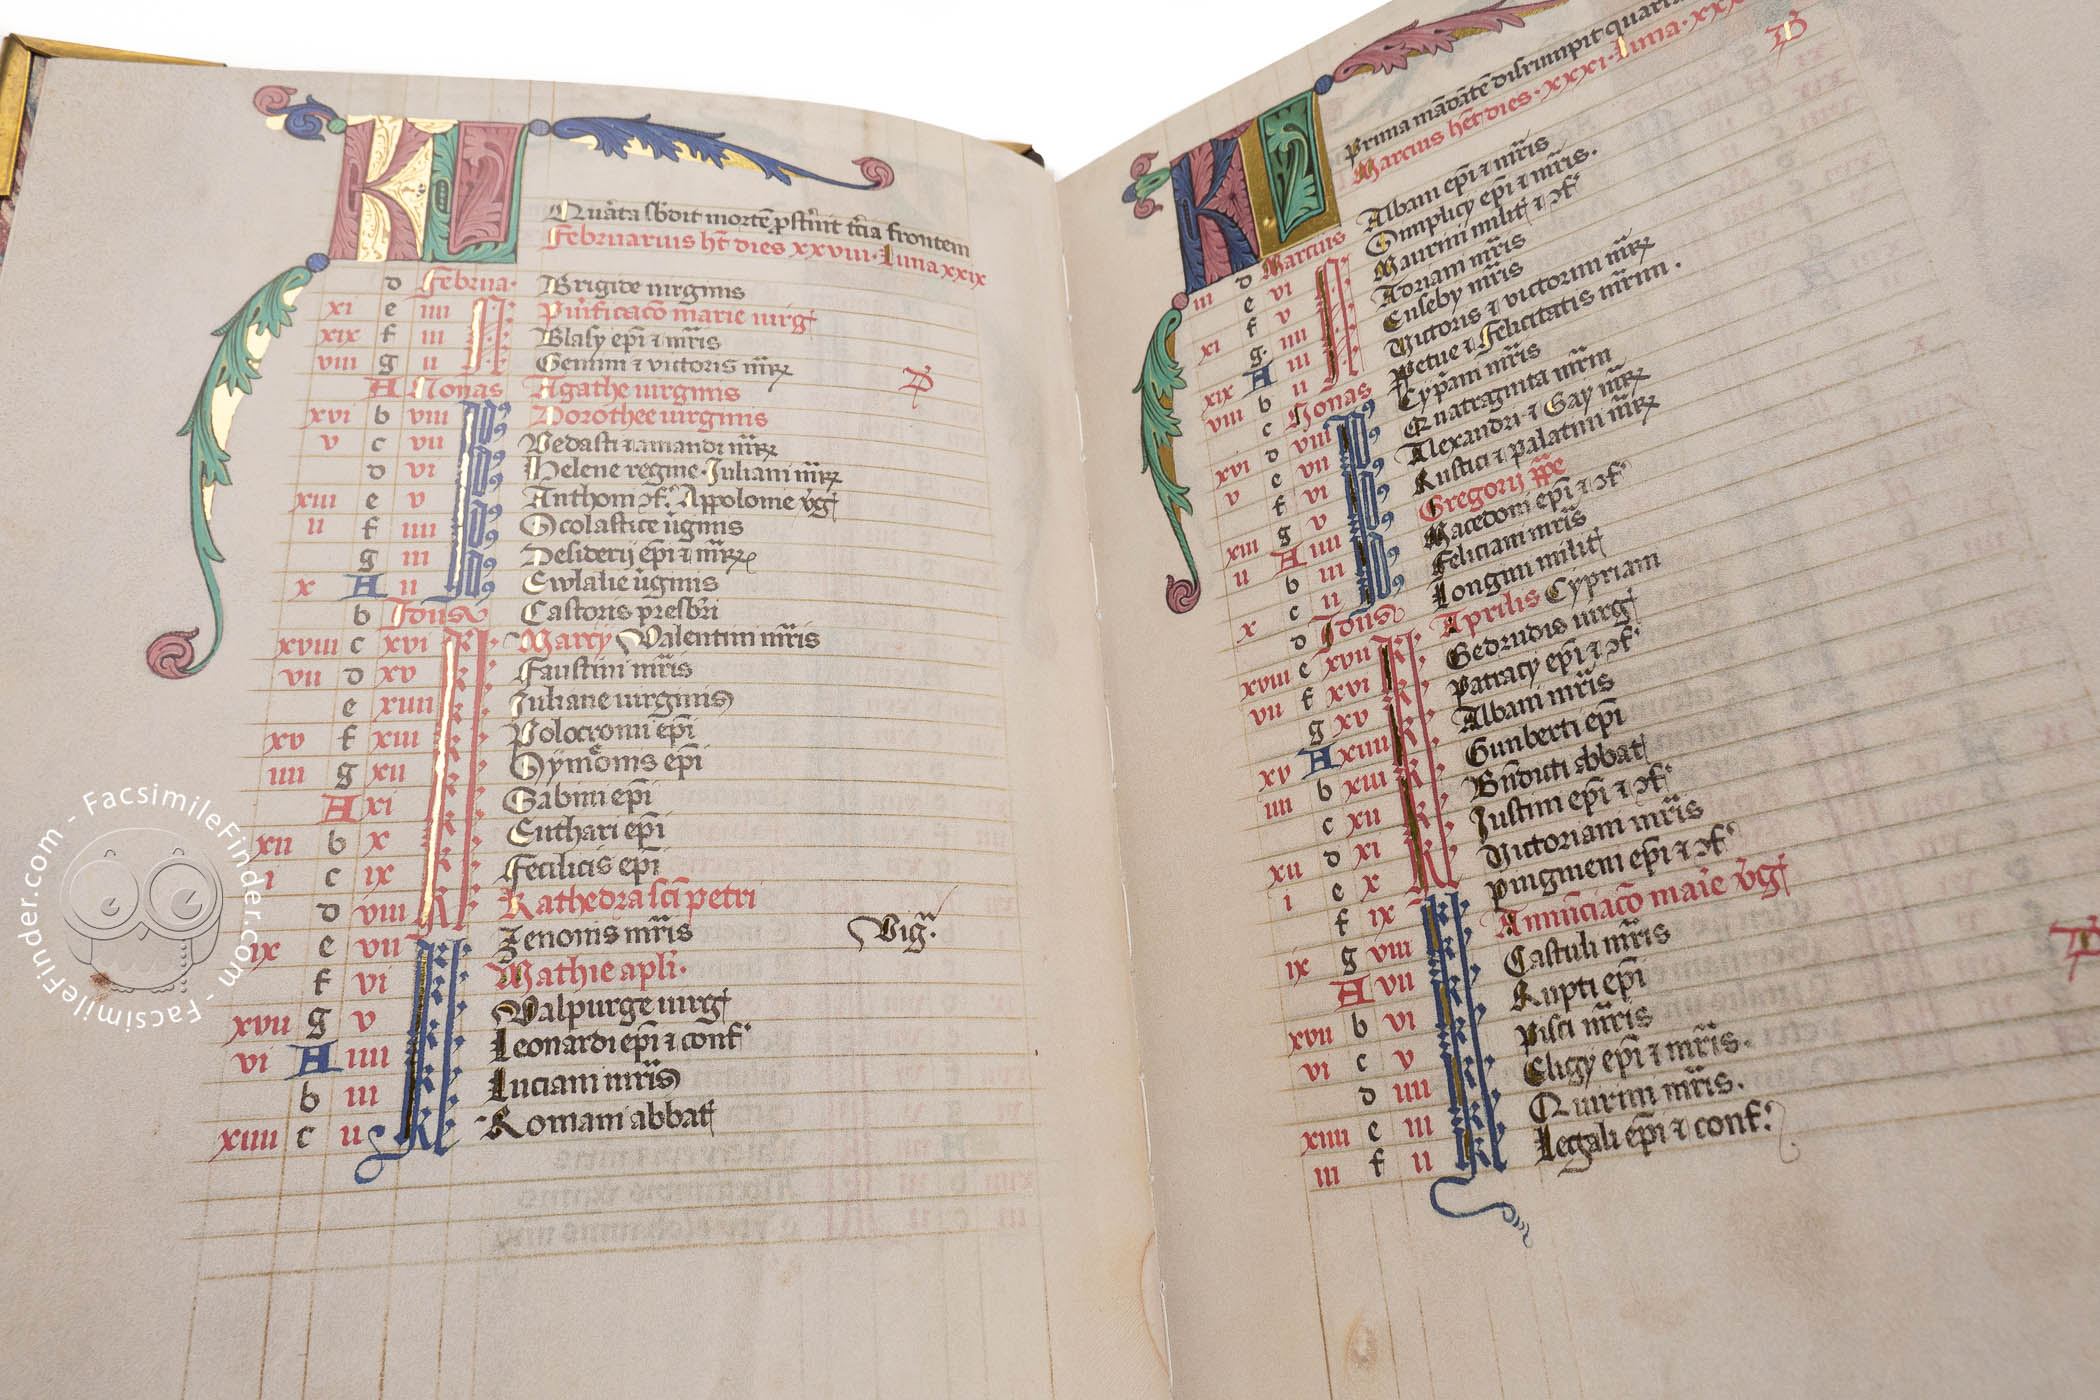 KL
Quarta sbdit mortē pstnit tcia frontem
Februarius ht dies xxviii. Luna xxix
d Februa. Brigide uirginis
xi e iiii N Purificacō marie uirg
xix f iii Blasy epi ⁊ mris
viii g ii Gemini ⁊ victoris mr
A Nonas Agathe uirginis
xvi b viii Id9 Dorothee uirginis
v c vii Vedasti ⁊ amandi mr
d vi Helene regine. Juliani mr
xiii e v Anthoni ⁊f. Appolonie vg
ii f iiii Scolastice uginis
g iii Desiderij epi ⁊ mr
x A ii Ewlalie uginis
b Idus Castoris presbri
xviii c xvi Kl Marcij Valentini mris
vii d xv Faustini mris
e xiiii Juliane uirginis
xv f xiii Polocronii epi
iiii g xii Symonis epi
A xi Gabini epi
xii b x Euthari epi
i c ix Fecilicis epi
d viii Kathedra sci petri
ix e vii Zenonis mris Vig.
f vi Mathie apli.
xvii g v Walpurge uirg
vi A iiii Leonardi epi ⁊ conf
b iii Luciani mris
xiiii c ii Kl Romani abbat
KL
Prima mādātē disrumpit quarta
Marcius hēt dies. xxxi. Luna. xxx
d Marcius Albani epi ⁊ mris
iii e vi N Simplicy epi ⁊ mris.
f v Maurini milit ⁊ ⁊f
xi g. iiii Adriani mris
A iii Euseby mris
xix b ii Victoris ⁊ victorini mr
viii c Nonas Ppetue ⁊ Felicitatis mrm.
d viii Id9 Cypani mris
xvi e vii Quatraginta mrm
v f vi Alexandri ⁊ Gay mr
g v Rustici ⁊ palatini mr
xiii A iiii Gregorij ppe
ii b iii Macedoni epi ⁊ ⁊f
c ii Feliciani mris
x d Idus Longini milit
xviii e xvii Kl Aprilis Cypriani
vii f xvi Gedrudis uirg
g xv Patricij epi ⁊ ⁊f
xv A xiiii Albani mris
iiii b xiii Gunberti epi
c xii Bndicti abbat
xii d xi Justini epi ⁊ ⁊f
i e x Victoriani mris
f ix Pingmeni epi ⁊ ⁊f
ix g viii Annūciacō marie vg
A vii Castuli mris
xvii b vi Rupti epi
vi c v Pisci mris
d iiii Eligy epi ⁊ mris.
xiiii e iii Quirini mris.
iii f ii Kl Legali epi ⁊ conf.
FacsimileFinder.com - FacsimileFinder.com - FacsimileFinder.com